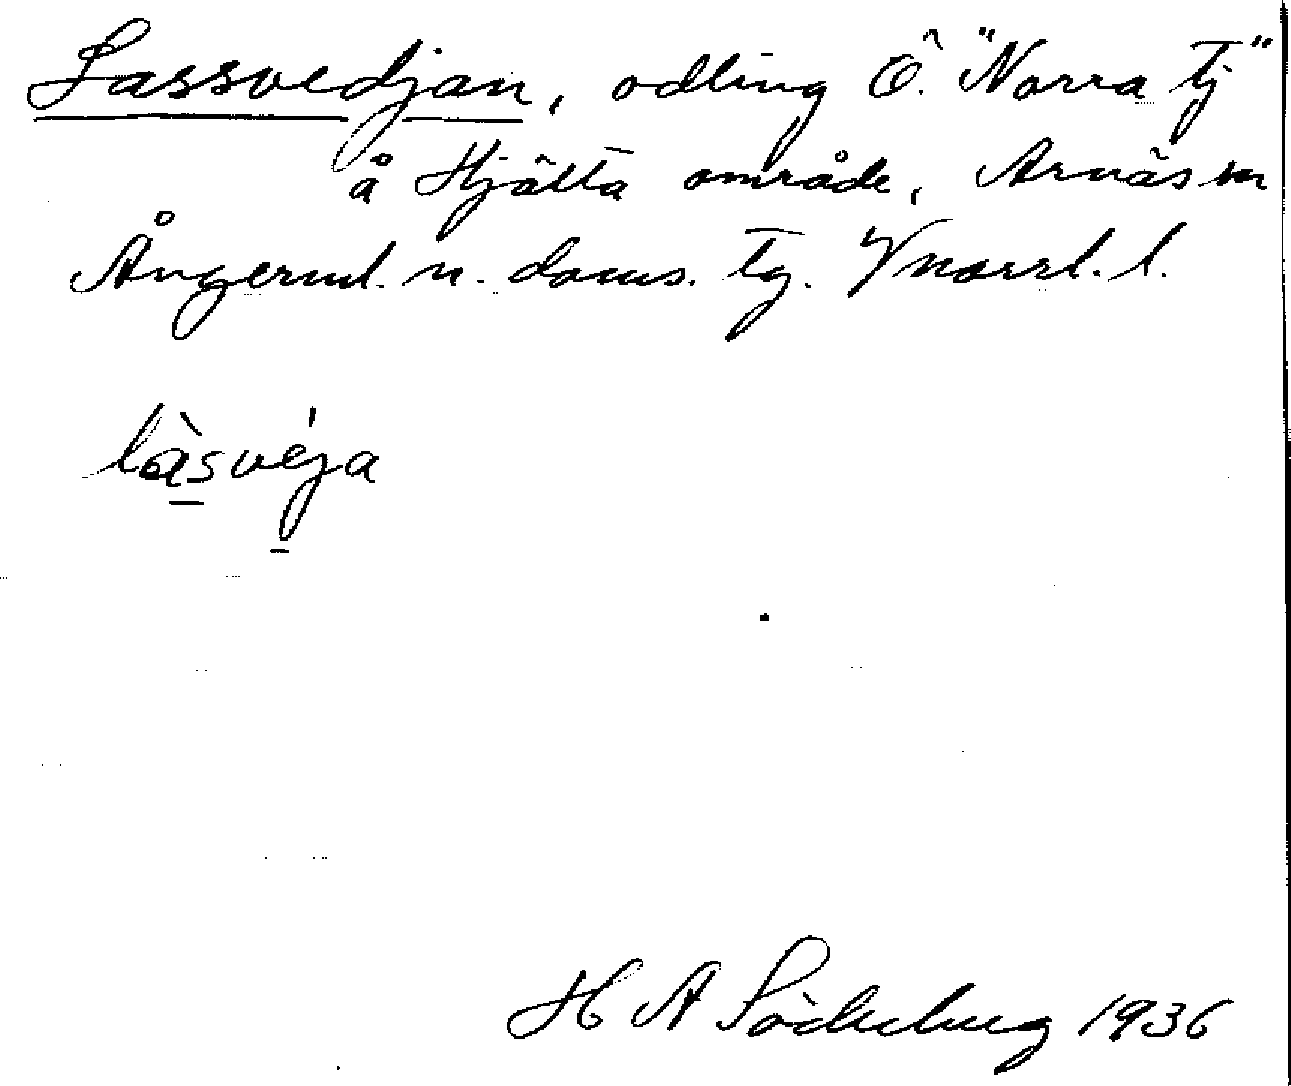 Lassvedjan, odling Ö. "Norra Tj"
å Hjälta område, Arnäs sn
Ångerml. n. doms. tg. Vnorrl. l.
làsvéja
H A Söderberg 1936